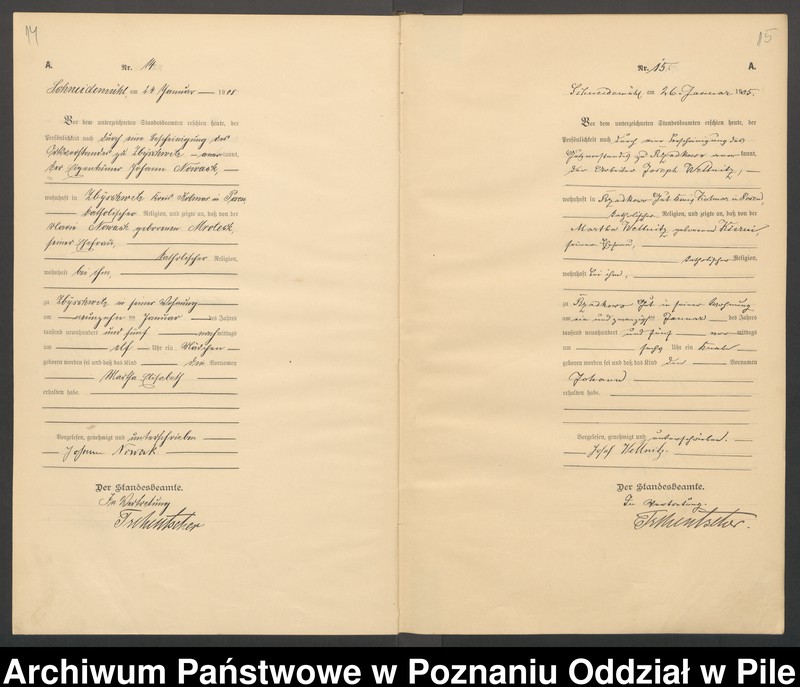 14
A.
Nr. 14
Schneidemühl, am 24 Januar 1905
Vor dem unterzeichneten Standesbeamten erschien heute, der
Persönlichkeit nach durch eine Bescheinigung des
zu kannt,
der Eigentümer Johann Nowack,
wohnhaft in Kreis Kolmar in Posen
katholischer Religion, und zeigte an, daß von der
Nowack geborenen
seiner Ehefrau,
katholischer Religion,
wohnhaft bei ihm,
zu in seiner Wohnung
am neunzehnten Januar des Jahres
tausend neunhundert und fünf nachmittags
um elf Uhr ein Mädchen
geboren worden sei und daß das Kind die Vornamen
Martha Elisabeth
erhalten habe.
Vorgelesen, genehmigt und unterschrieben
Johann Nowak
Der Standesbeamte.
In Vertretung
15
Nr. 15
A.
Schneidemühl am 26. Januar 1905.
Vor dem unterzeichneten Standesbeamten erschien heute, der
Persönlichkeit nach durch eine Bescheinigung des
Gutsvorstandes zu kannt,
der Arbeiter Joseph Wellnitz,
wohnhaft in Gut Kreis Kolmar in Posen,
katholischer Religion, und zeigte an, daß von der
Martha Wellnitz geborenen
seiner Ehefrau,
katholischer Religion,
wohnhaft bei ihm,
zu Gut in seiner Wohnung
am ein und zwanzigsten Januar des Jahres
tausend neunhundert und fünf vormittags
um sechs Uhr ein Knabe
geboren worden sei und daß das Kind den Vornamen
Johann
erhalten habe.
Vorgelesen, genehmigt und unterschrieben.
Josef Wellnitz.
Der Standesbeamte.
In Vertretung.
Archiwum Państwowe w Poznaniu Oddział w Pile